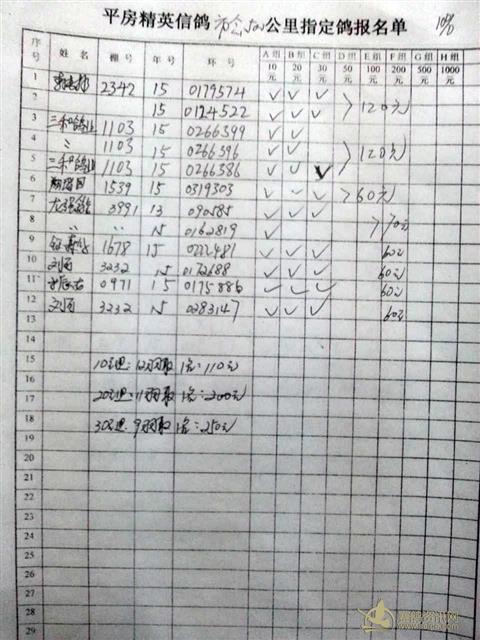 平房精英信鸽市会500公里指定鸽报名单 10%
序号 姓名 棚号 年号 环号 A组 B组 C组 D组 E组 F组 G组 H组
10元 20元 30元 50元 100元 200元 500元 1000元
1 2342 15 0179574 ✓ ✓ ✓
2 15 0124522 ✓ ✓ ✓ >120元
3 三和鸽业 1103 15 0266399 ✓ ✓
4 〃 1103 15 0266396 ✓ ✓ >120元
5 三和鸽业 1103 15 0266386 ✓ ✓ ✓
6 1539 15 0319303 ✓ ✓ ✓ >60元
7 3991 13 090585 ✓ ✓ ✓
8 〃 〃 15 0162819 ✓ >70元
9 1678 15 0222481 ✓ ✓ ✓ 60元
10 刘 3232 15 0172688 ✓ ✓ ✓ 60元
11 0971 15 0175886 ✓ ✓ ✓ 60元
12 刘 3232 15 0283147 ✓ ✓ ✓ 60元
13
14
15 10元组:12羽取1名:110元
16
17 20元组:11羽取1名:200元
18 30元组:9羽取1名:250元
19
20
21
22
23
24
25
26
27
28
29